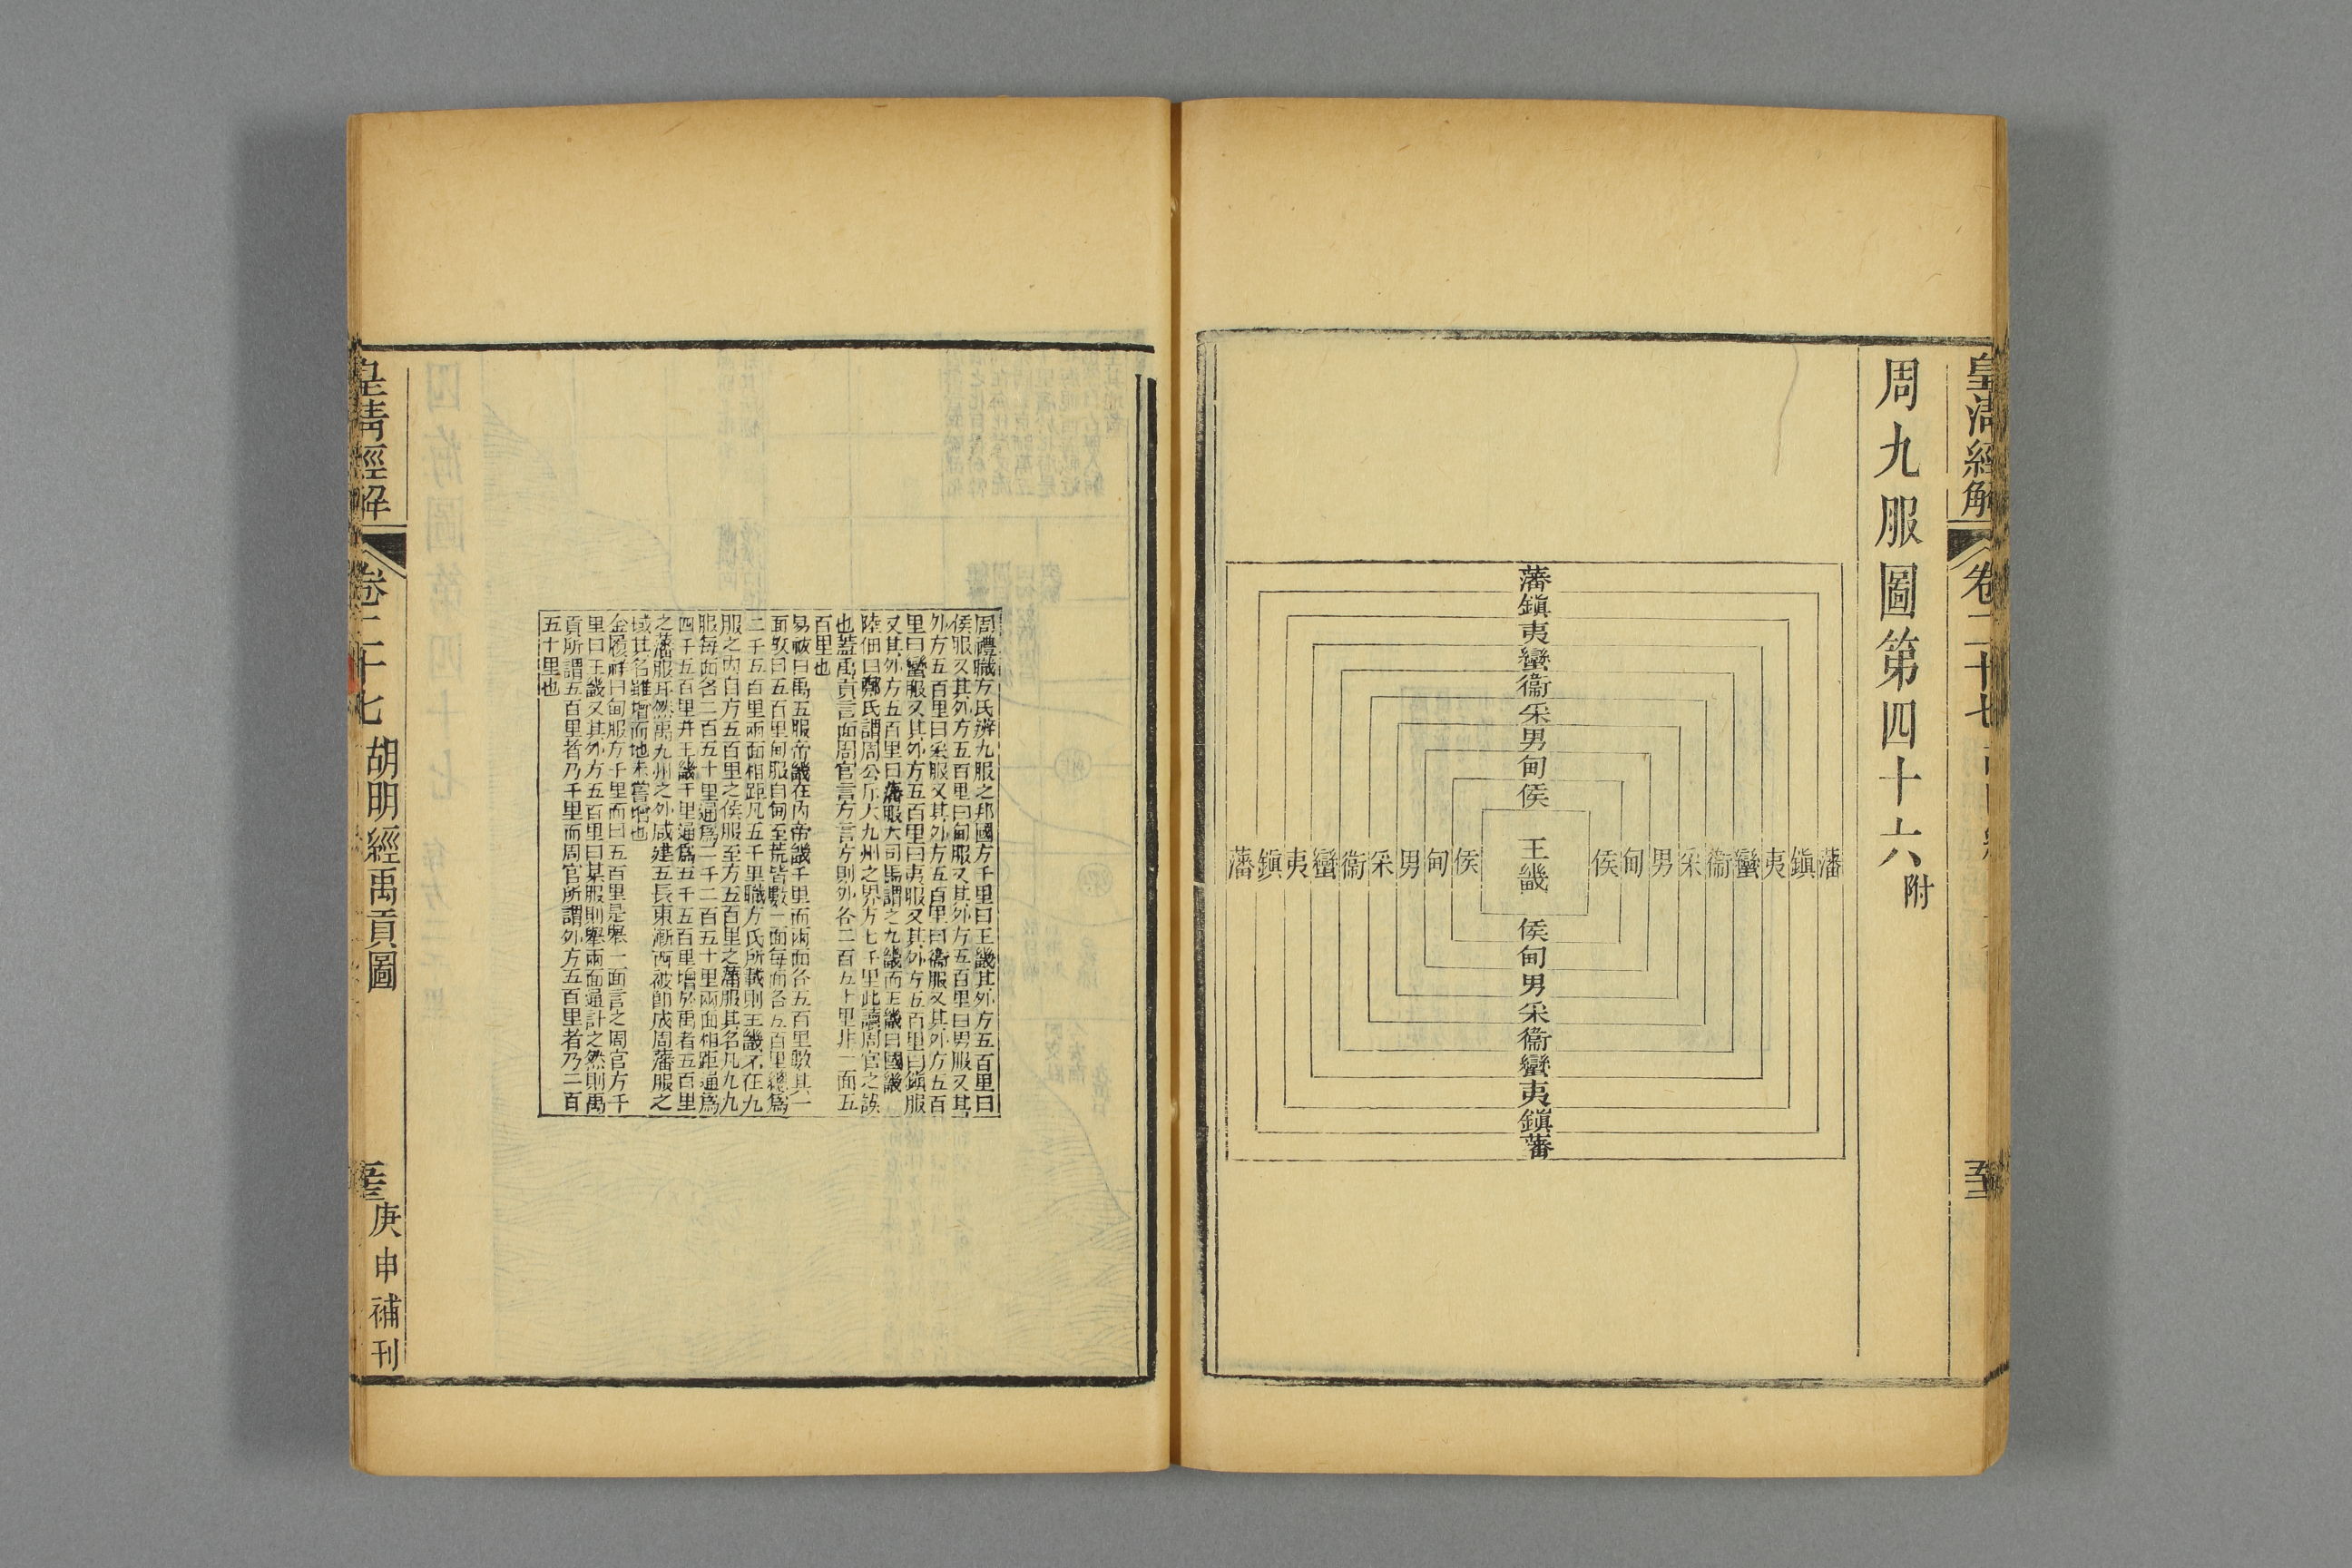 皇清經解
卷二十七
周九服圖第四十六附
藩鎮夷蠻衞采男甸侯
王畿
侯甸男采衞蠻夷鎮藩
侯甸男采衞蠻夷鎮藩
藩鎮夷蠻衞采男甸侯
周禮職方氏辨九服之邦國方千里曰王畿其外方五百里曰
侯服又其外方五百里曰甸服又其外方五百里曰男服又其
外方五百里曰采服又其外方五百里曰衞服又其外方五百
里曰蠻服又其外方五百里曰夷服又其外方五百里曰鎮服
又其外方五百里曰藩服大司馬謂之九畿而王畿曰國畿
陸佃曰鄭氏謂周公斥大九州之界方七千里此讀周官之誤
也蓋禹貢言面周官言方言方則外各二百五十里非一面五
百里也
易祓曰禹五服帝畿在內帝畿千里而兩面各五百里數其一
面故曰五百里甸服自甸至荒皆數一面每面各五百里總爲
二千五百里兩面相距凡五千里職方氏所載則王畿不在九
服之內自方五百里之侯服至方五百里之藩服其名凡九九
服每面各二百五十里通爲二千二百五十里兩面相距通爲
四千五百里并王畿千里通爲五千五百里增於禹者五百里
之藩服耳然禹九州之外咸建五長東漸西被卽成周藩服之
域其名雖增而地未嘗增也
金履祥曰甸服方千里而曰五百里是舉一面言之周官方千
里曰王畿又其外方五百里曰某服則舉兩面通計之然則禹
貢所謂五百里者乃千里而周官所謂外方五百里者乃二百
五十里也
皇清經解
卷二十七 胡明經禹貢圖
庚申補刊